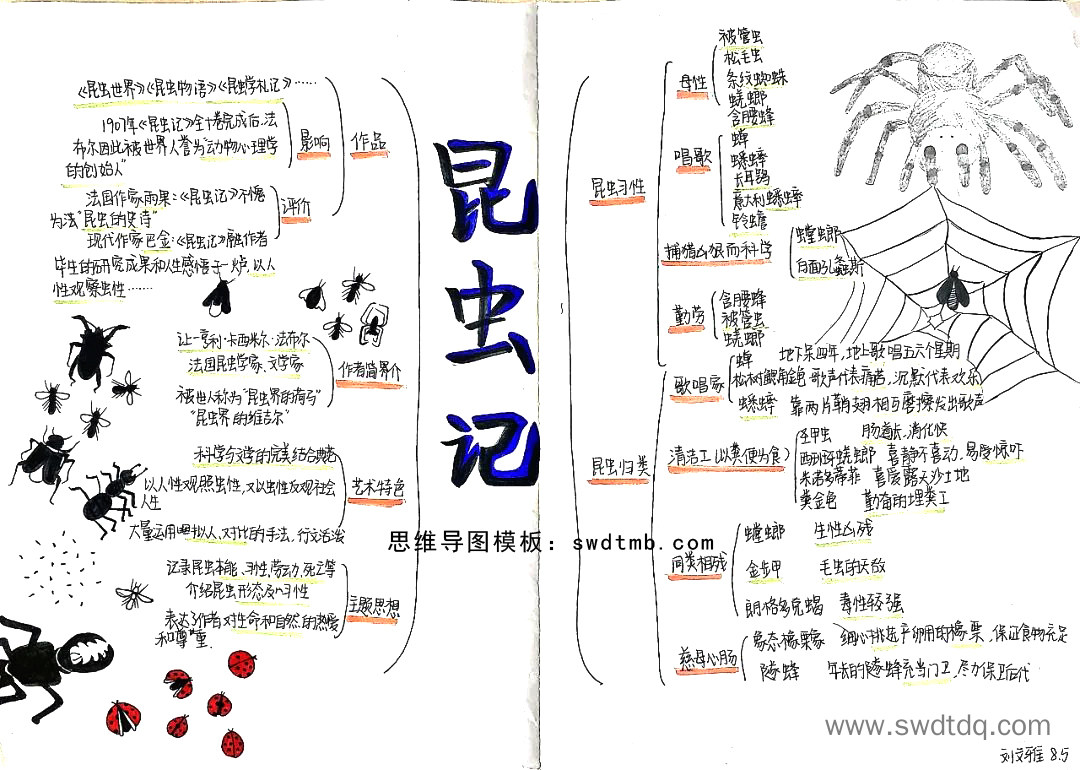 昆虫记
《昆虫世界》《昆虫物语》《昆虫学札记》……
1907年《昆虫记》全十卷完成后,法
布尔因此被世界人誉为"动物心理学
的创始人"
影响
作品
法国作家雨果:《昆虫记》不愧
为法"昆虫的史诗"
现代作家巴金:《昆虫记》融作者
毕生的研究成果和人生感悟于一炉,以人
性观察虫性……
评价
让-亨利·卡西米尔·法布尔
法国昆虫学家、文学家
被世人称为"昆虫界的荷马"
"昆虫界的维吉尔"
作者简界介
科学与文学的完美结合典范
以人性观照虫性,又以虫性反观社会
人生
大量运用拟人、对比的手法,行文活泼
艺术特色
记录昆虫本能、习性、劳动、死亡等
介绍昆虫形态及习性
表达了作者对生命和自然的热爱
和尊重.
主题思想
昆虫习性
母性
被管虫
松毛虫
条纹蜘蛛
蜣螂
含腰蜂
唱歌
蝉
蟋蟀
长耳鸮
意大利蟋蟀
铃蟾
捕猎凶狠而科学
螳螂
白面孔螽斯
勤劳
含腰蜂
被管虫
蜣螂
昆虫归类
歌唱家
蝉 地下呆四年,地上歌唱五六个星期
松树鳃角金龟 歌声代表痛苦,沉默代表欢乐
蟋蟀 靠两片鞘翅相互磨擦发出歌声
清洁工(以粪便为食)
圣甲虫 肠道长,消化快
西班牙蜣螂 喜静不喜动,易受惊吓
米诺多蒂菲 喜爱露天沙土地
粪金龟 勤奋的埋粪工
同类相残
螳螂 生性凶残
金步甲 毛虫的天敌
朗格多克蝎 毒性较强
慈母心肠
象态橡栗象 细心挑选产卵用的橡栗,保证食物充足
隧蜂 年长的隧蜂充当门卫,尽力保卫后代
思维导图模板:swdtmb.com
www.swdtdq.com
刘文雅 8.5